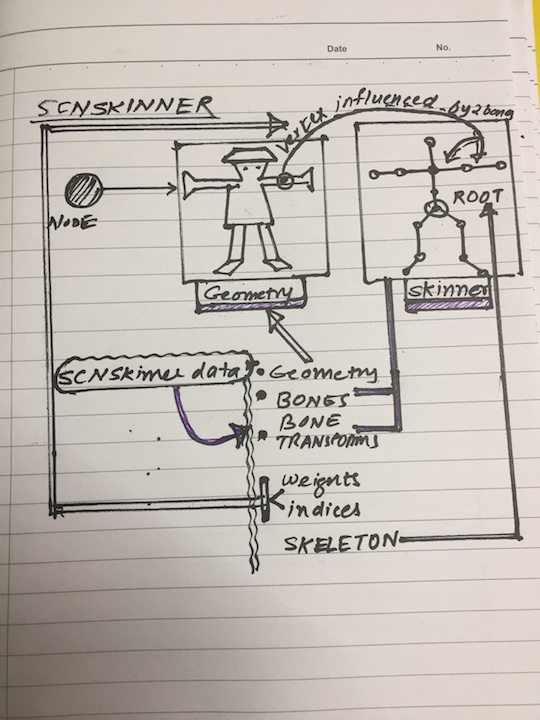 Date No.
SCNSKINNER
vertex influenced by 2 bone
NODE
ROOT
Geometry
skinner
SCNSkinner data
Geometry
BONES
BONE
TRANSFORMS
weights
indices
SKELETON